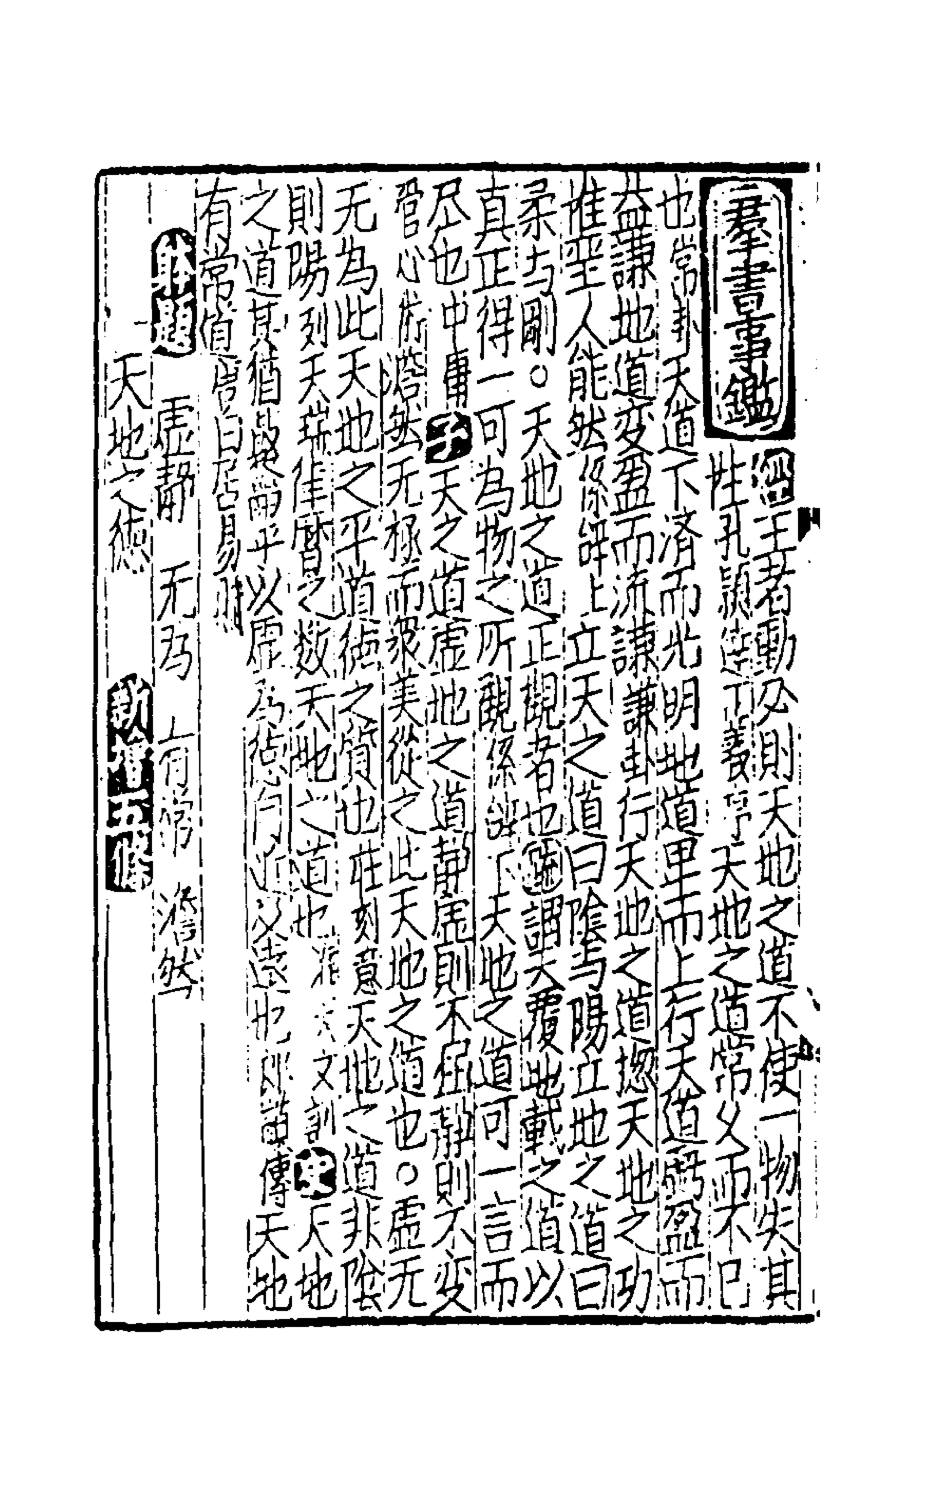 羣書事鑑
經王者動必則天地之道不使一物失其
性孔穎達丁義序天地之道常久而不已
也常卦天道下济而光明地道卑而上行天道虧盈而
益謙地道变盈而流謙謙卦行天地之道捴天地之功
惟圣人能然係辞上立天之道曰陰与陽立地之道曰
柔与剛○天地之道正觀者也疏謂天覆地載之道以
真正得一可為物之所觀係辞下天地之道可一言而
尽也中庸子天之道虚地之道静虚則不屈静則不变
管心術澹然无極而衆美從之此天地之道也○虚无
无為此天地之平道德之質也荘刻意天地之道非陰
則陽列天瑞隹曆之数天地之道也淮文文訓史天地
之道其猶鼓 乎以虚為德 近 遠也郎顗傳天地
有常道唐白居易
體題 虚静 无為 有常 澹然
天地之德 新增五條